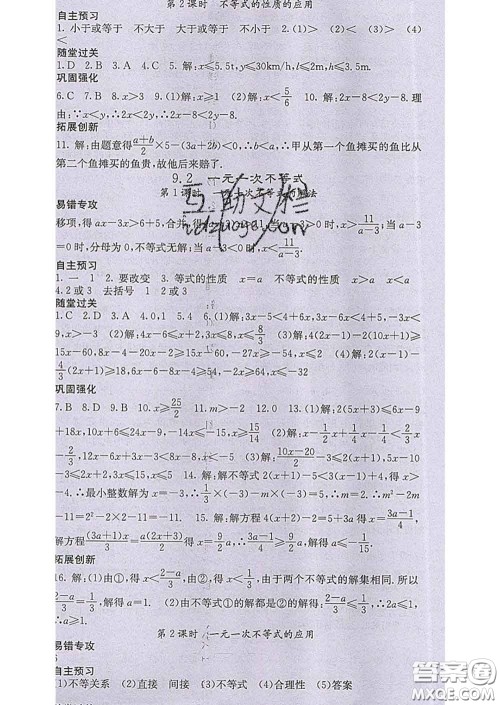 第2课时　不等式的性质的应用
自主预习
1. 小于或等于　不大于　大于或等于　不小于　2. (1)<　(2)<　(3)<　(4)
<
随堂过关
1. D　2. A　3. A　4. C　5. 解:x≤5.5t,y≤30km/h,l≤2m,h≤3.5m.
巩固强化
6. C　7. B　8. x>3　9. (1)解:x≥1　(2)x<5/6　10. 解:2x-8<2y-8. 理
由:∵x<y,∴2x<2y,∴2x-8<2y-8.
拓展创新
11. 解:由题意得(a+b)/2×5-(3a+2b)<0,∴b<a,∴甲从第一个鱼摊买的鱼比从
第二个鱼摊买的鱼贵,故他后来赔了.
9.2　一元一次不等式
第1课时
易错专攻
移项,得ax-3x>6+5,合并,得
=0时,分母为0,不等式无解;当a-3<0时,x<11/(a-3).
自主预习
1. 一　1　2. 要改变　3. 等式的性质　x=a　不等式的性质　x>a　x<a
4. 2或3　去括号　1　2或3
随堂过关
1. C　2. D　3. A　4. 0　5. 4　6. (1)解:3x-6x<4+5,-3x<
9,x>-3　(2)解:4x-6≤x+2,3x≤8,x≤8/3　(3)解:4(2x-1)-2(10x+1)≥
15x-60,8x-4-20x-2≥15x-60,-27x≥-54,x≤2　(4)解:2(x+1)-
4/3(2x+1)≥18,6x-6-8x-4≥54,-2x≥64,x≤-32
巩固强化
7. B　8. D　9. B　10. x≥25/2　11. m>-2　12. 0　13. (1)解:2(5x+3)≤6x-9
+18x,10x-6x-18x≤-9-6,-14x≤-15,x≥15/14　(2)解:1/3x-4<1-2/3
x,1/3x+2/3x<1+4,x<5　(3)解:(10x-20)/2-(10x+10)/5≤3,5x-10-2x-
2≤3,3x≤15,x≤5　14. 解:解不等式2(2x-1)-5(x-1)≤7,得x≥
-4,∴最小整数解为
-11=2²-2×2-11=-11.　15. 解:解方程4(x+2)-2=5+3a得x=(3a-1)/4,
解方程(3a+1)x/3=a(2x+3)/2得x=9/2a,∴9/2a≥(3a-1)/4,解得a≥-1/15.
拓展创新
16. 解:(1)由①,得x<(2-a)/3,由②,得x<1/3,由于两个不等式的解集相同. 所以
(2-a)/3=1/3,解得a=1.　(2)由不等式①的解都是②的解得(2-a)/3≤1/3,∴2-a≤
1,∴a≥1.
第2课时　一元一次不等式的应用
易错专攻
自主预习
(1)不等关系　(2)直接　间接　(3)不等式　(4)合理性　(5)答案